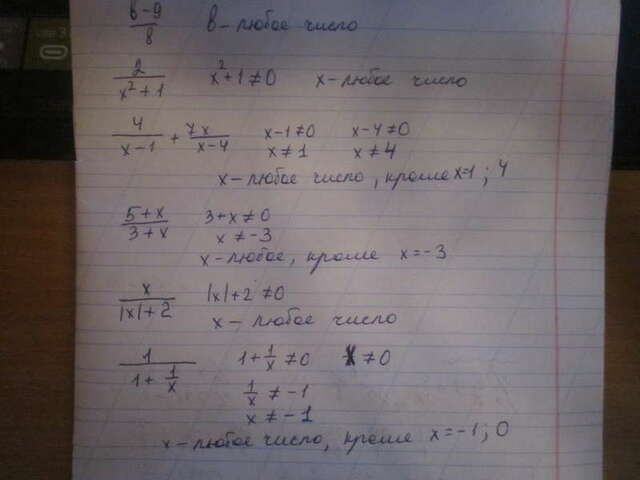 в-9/8 в - любое число
2/(x²+1) x²+1≠0 x - любое число
4/(x-1) + 7x/(x-4) x-1≠0 x-4≠0
x≠1 x≠4
x - любое число, кроме x=1; 4
(5+x)/(3+x) 3+x≠0
x≠-3
x - любое, кроме x=-3
x/(|x|+2) |x|+2≠0
x - любое число
1/(1+1/x) 1+1/x≠0 x≠0
1/x≠-1
x≠-1
x - любое число, кроме x=-1; 0